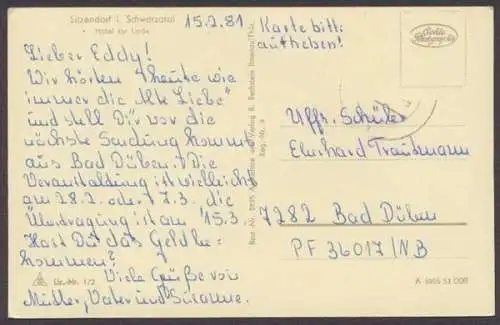 Sitzendorf i. Schwarzatal
• Hotel zur Linde
15.2.81
Karte bitte
aufheben!
Echte
Photographie
Lieber Eddy!
Wir hörten heute wie
immer die "Alte Liebe"
und stell Dir vor die
nächste Sendung kommt
aus Bad Düben! Die
Veranstaltung ist vielleicht
am 28.2. oder 7.3. die
Übertragung ist am 15.3.
Hast Du das Geld be-
kommen?
Viele Grüße von
Mutter, Vater und Susanne.
Uffz. Schüler
Eberhard Trautmann
7282 Bad Düben
PF 36017/NB
Reg.-Nr.
Lix.-Nr. 1/2